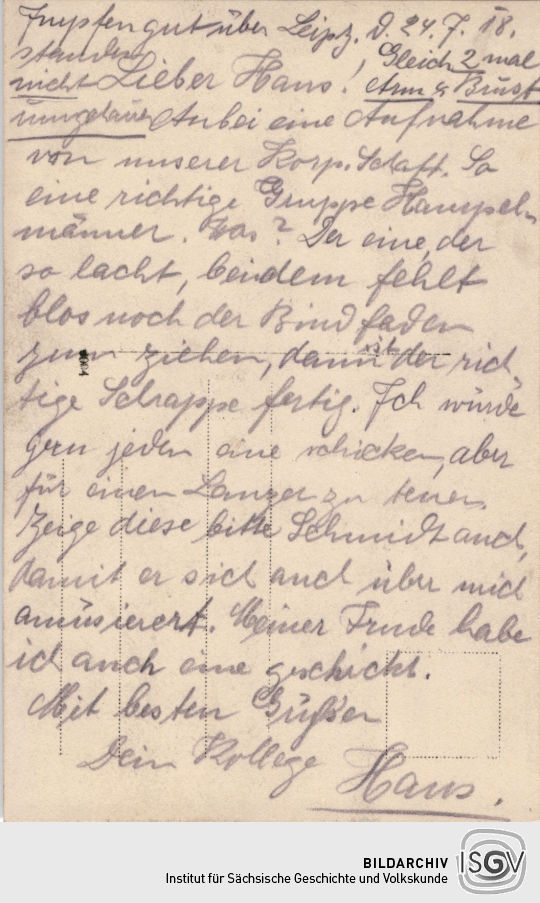 gut über Leipz. D. 24.7.18.
standen
nicht Lieber Hans! Gleich 2 mal
Arm & Brust
umgehauen Anbei eine Aufnahme
von unserer Korp.Schaft. So
eine richtige Gruppe Hampel-
männer. Was? Der eine, der
so lacht, bei dem fehlt
blos noch der Bindfaden
zum ziehen, dann ist der rich
tige Schrappe fertig. Ich würde
gern jeden eine schicken, aber
für einen Lanzer zu teuer.
Zeige diese bitte Schmidt auch,
damit er sich auch über mich
amüsierert. Meiner Trude habe
ich auch eine geschickt.
Mit besten Grüßen
Dein Kollege
Hans.
BILDARCHIV
Institut für Sächsische Geschichte und Volkskunde
ISGV